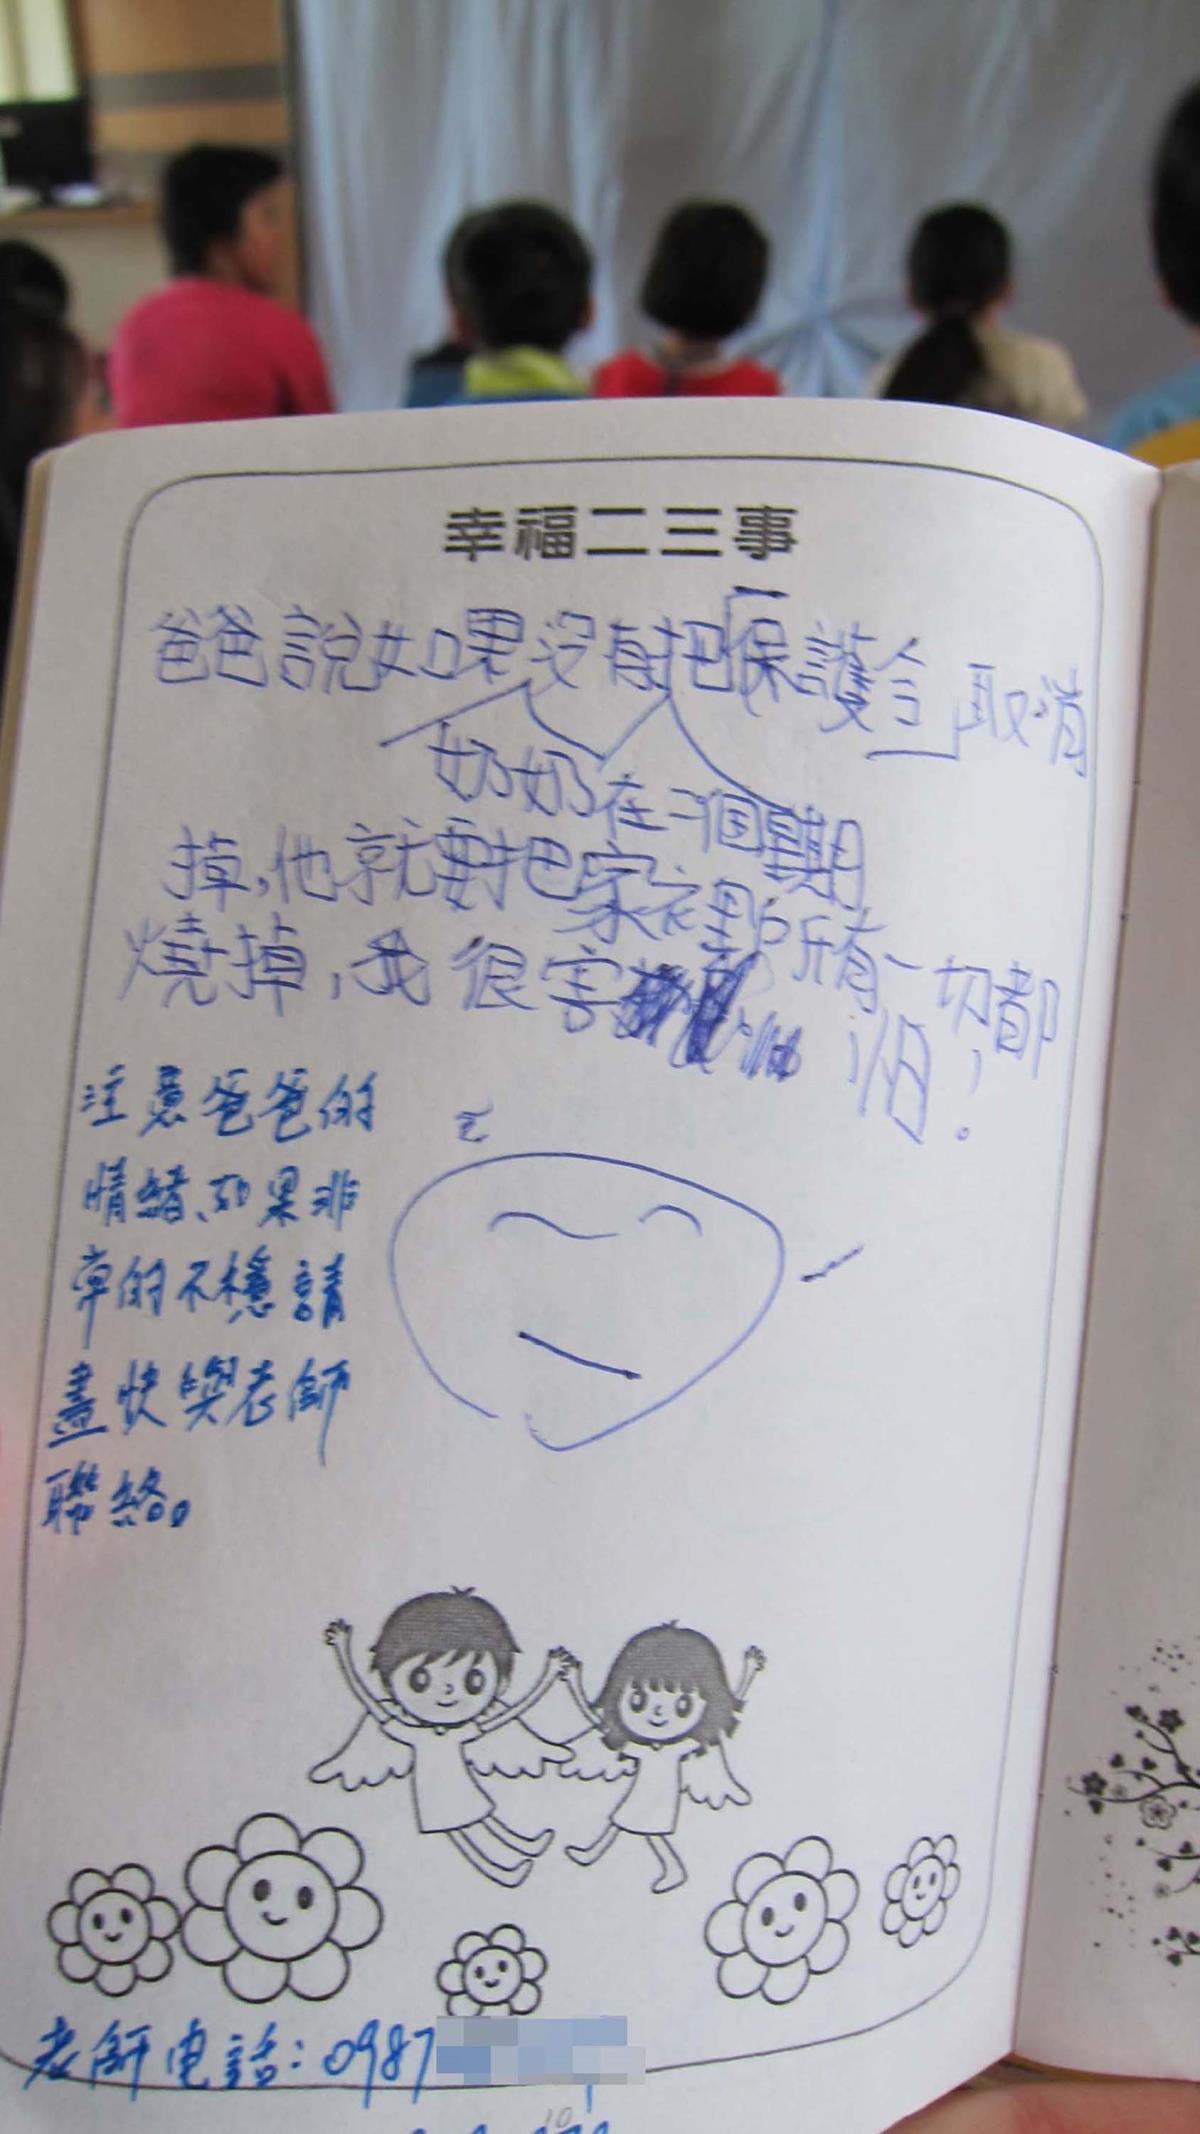 幸福二三事
爸爸說如果沒有把「保護令」取消
奶奶在二個星期
掉,他就要把家裡所有一切都
燒掉,我很害怕!
注意爸爸的
情緒、如果非
常的不穩請
盡快與老師
聯絡。
老師電話:0987
10